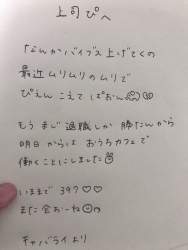 上司ぴへ
なんかバイブス上げてくの
最近ムリムリのムリで
ぴえん こえて ぱおん
もう まじ 退職しか 勝たんから
明日 からは おうちカフェで
働くことにしました
いままで 397 ♡♡
また 会おーね
ギャバライより